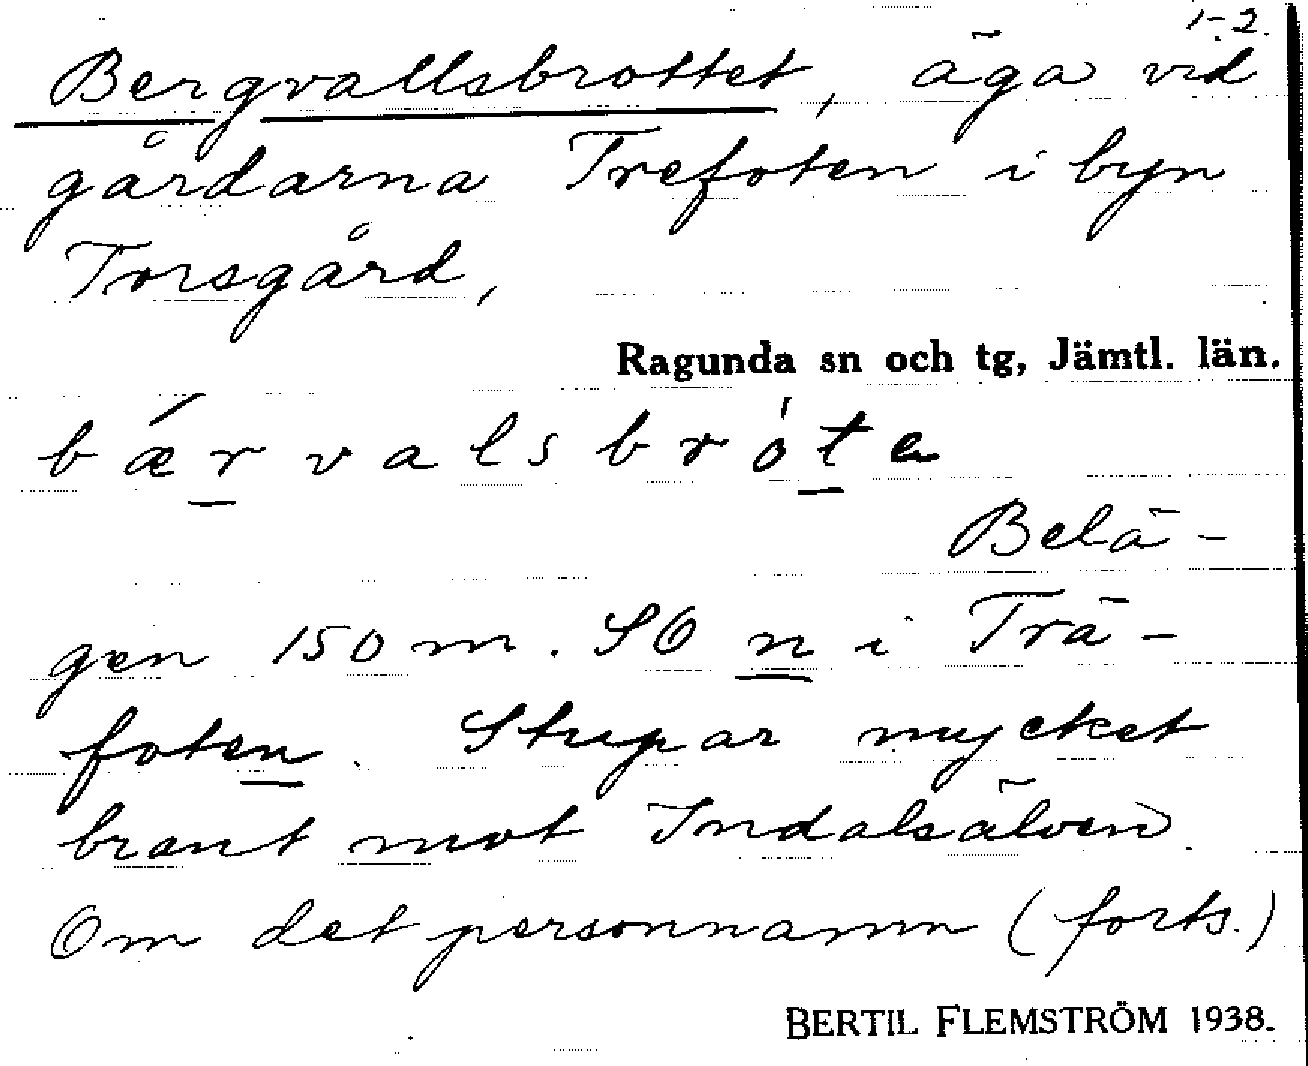 1-2.
Bergvallsbrottet, äga vid
gårdarna Trefoten i byn
Torsgård,
Ragunda sn och tg, Jämtl. län.
bǽrvalsbróte
Belä-
gen 150 m. SÖ n i Trä-
foten. Stupar mycket
brant mot Indalsälven.
Om det personnamn (forts.)
BERTIL FLEMSTRÖM 1938.